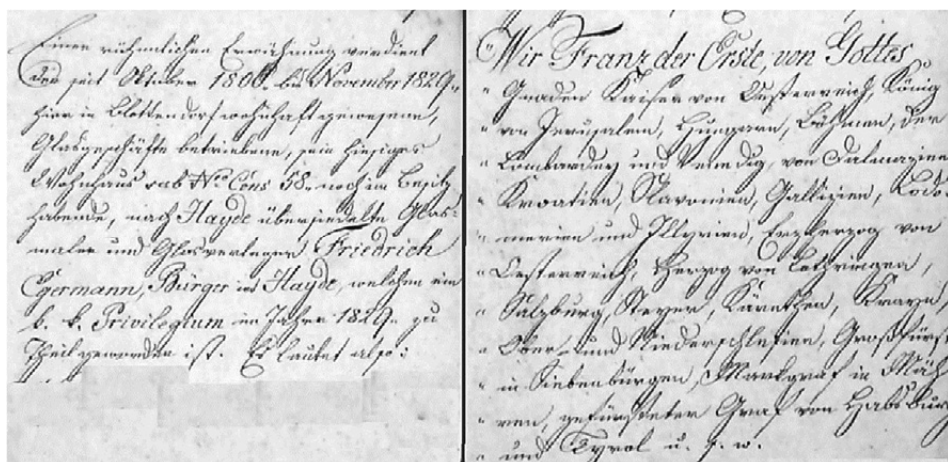 Einer rühmlichen Erwähnung verdient
der seit Oktober 1806. bis November 1829.
hier in Blottendorf wohnhaft gewesene,
Glasgeschäfte betriebene, sein hiesiges
Wohnhaus sub No Cons 58. noch im Besitz
habende, nach Hayde übersiedelte Glas-
maler und Glasverleger Friedrich
Egermann, Bürger in Hayde, welchem ein
k. k. Privilegium im Jahre 1829. zu
Theil geworden ist. Es lautet also:
"Wir Franz der Erste, von Gottes
" Gnaden Kaiser von Oesterreich, König
" von Jerusalem, Hungarn, Böhmen, der
" Lombardey und Venedig, von Dalmazien
" Kroatien, Slavonien, Gallizien, Lodo
" merien und Illyrien, Erzherzog von
" Oesterreich, Herzog von Lothringen,
" Salzburg, Steyer, Kärnthen, Krayn,
" Ober- und Niederschlesien, Großfürst
" in Siebenbürgen, Markgraf in Mäh
" ren, gefürsteter Graf von Habsburg
" und Tyrol u. s. w.